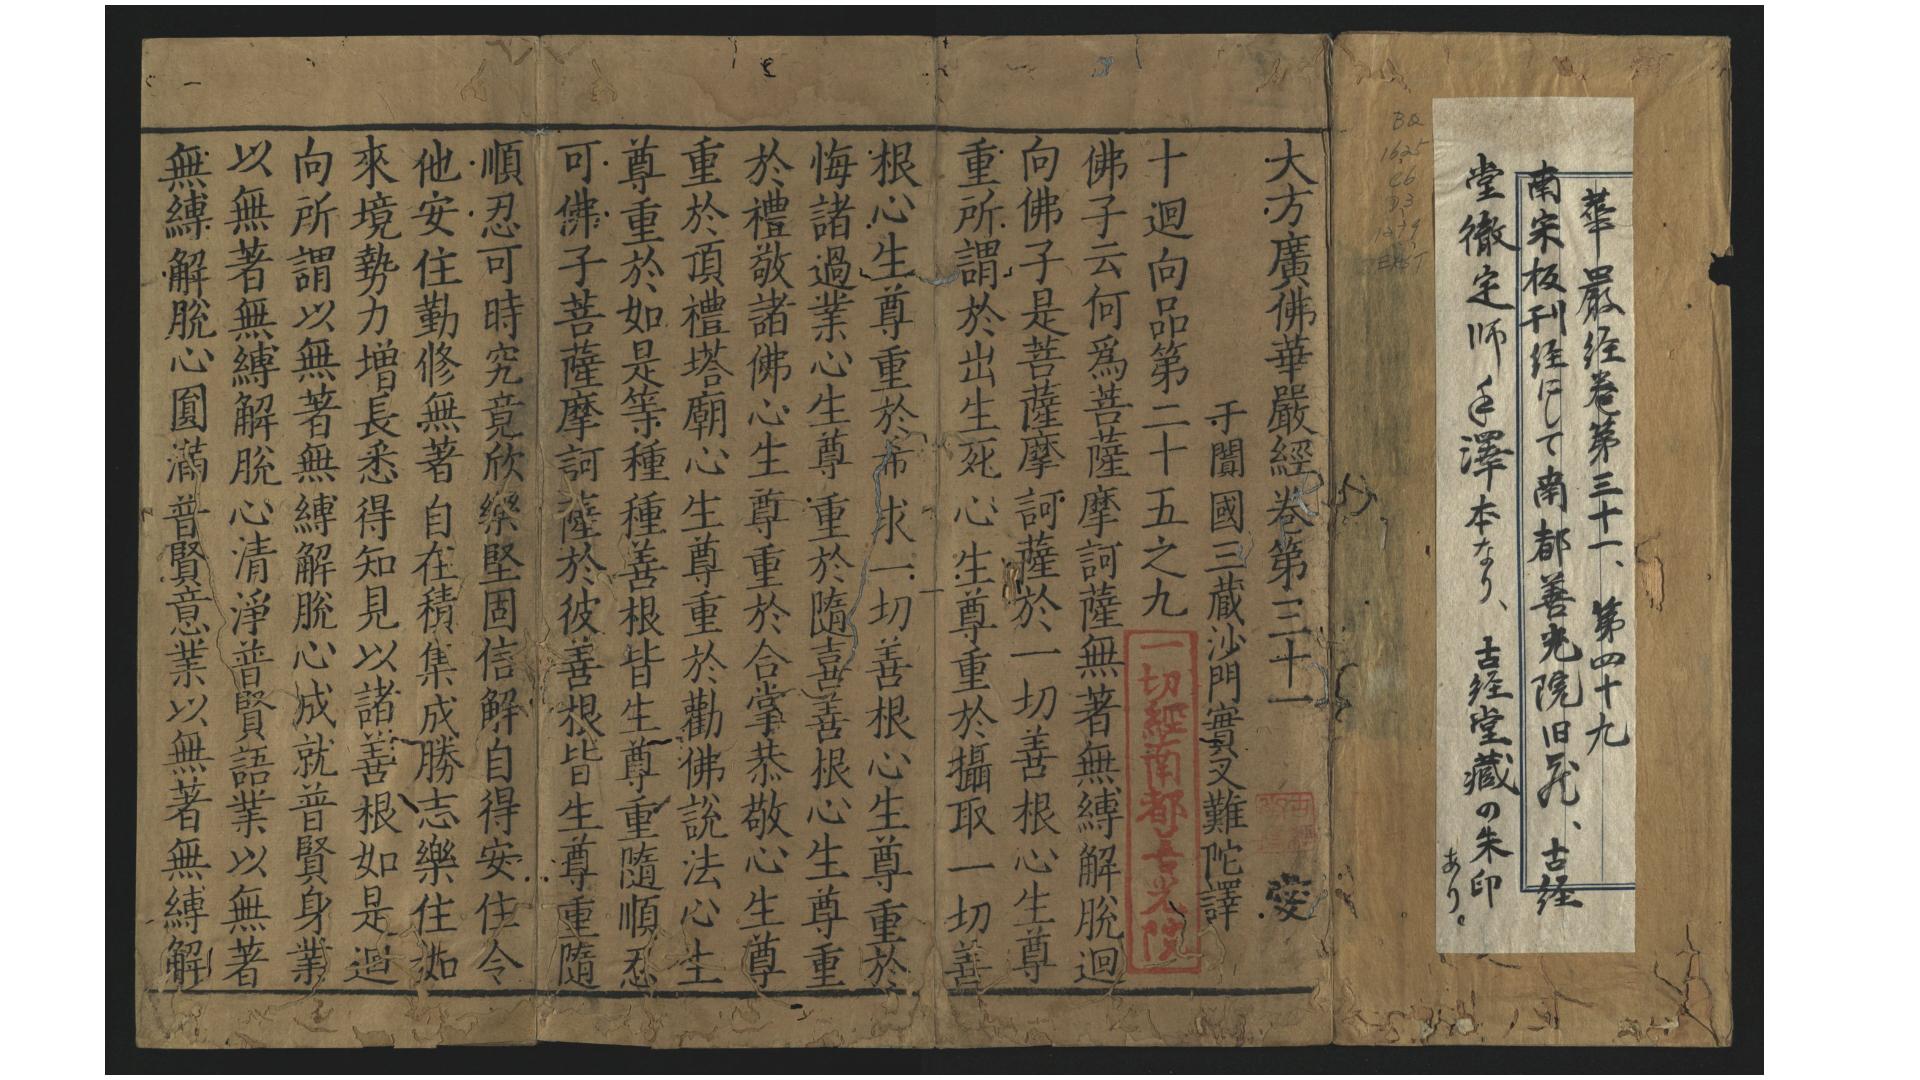 華嚴経巻第三十一、第四十九
南宋板刊経にして南都善光院旧蔵、古経
堂徹定師手澤本なり、古経堂藏の朱印
あり。
BQ
1625
C6
大方廣佛華嚴經卷第三十一 愛
于闐國三藏沙門實叉難陀譯
十迴向品第二十五之九
一切經南都善光院
佛子云何爲菩薩摩訶薩無著無縛解脫迴
向佛子是菩薩摩訶薩於一切善根心生尊
重所謂於出生死心生尊重於攝取一切善
根心生尊重於希求一切善根心生尊重於
悔諸過業心生尊重於隨喜善根心生尊重
於禮敬諸佛心生尊重於合掌恭敬心生尊
重於頂禮塔廟心生尊重於勸佛說法心生
尊重於如是等種種善根皆生尊重隨順忍
可佛子菩薩摩訶薩於彼善根皆生尊重隨
順忍可時究竟欣樂堅固信解自得安住令
他安住勤修無著自在積集成勝志樂住如
來境勢力增長悉得知見以諸善根如是迴
向所謂以無著無縛解脫心成就普賢身業
以無著無縛解脫心清淨普賢語業以無著
無縛解脫心圓滿普賢意業以無著無縛解